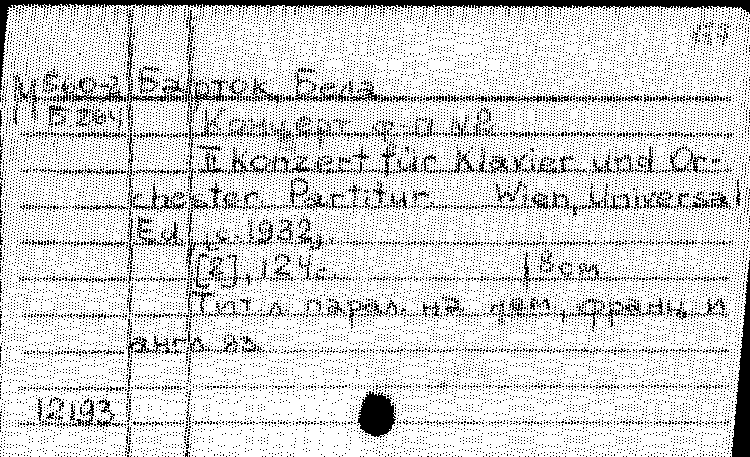 М 560-2 Барток, Бела
Б 264 Концерт ф-п №2
II Konzert für Klavier und Or-
chester. Partitur. Wien, Universal
Ed., c. 1932,
[2], 124 с. 18 cm
Тит. л. парал. на нем., франц. и
англ. яз.
12193